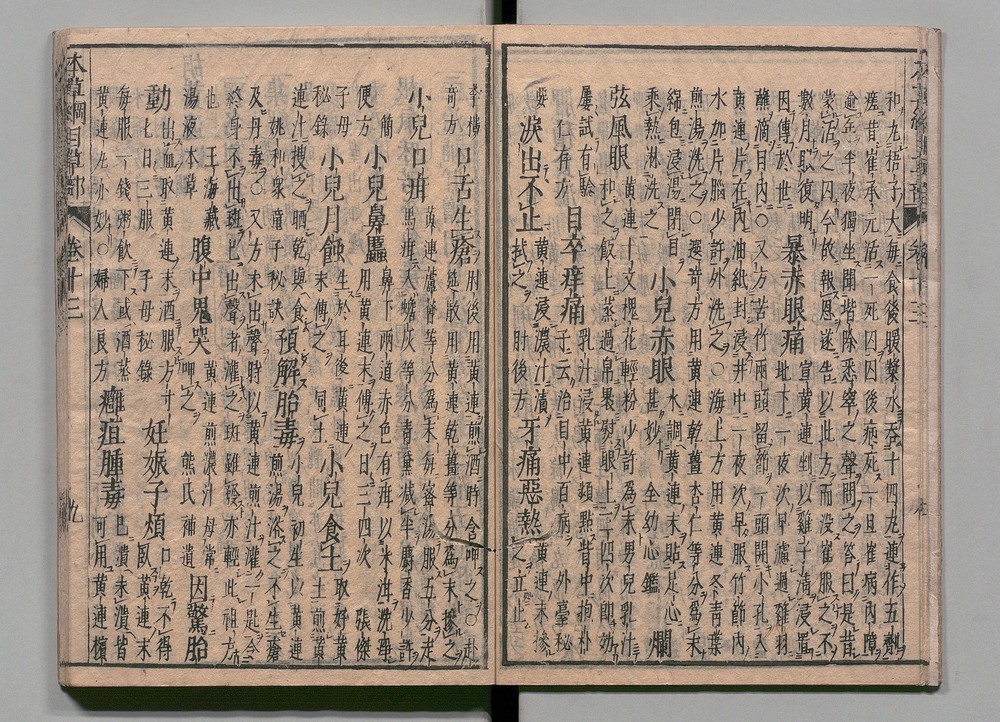 和丸梧子大每食後暖漿水吞十四丸連作五劑
瘥昔崔承元活一死囚囚後病死一旦崔病內障
逾年半夜獨坐聞堦除悉窣之聲問之答曰是昔
蒙活之囚今故報恩遂告以此方而没崔服之不
數月眼復明
因傳於世
暴赤眼痛
宣黃連剉以雞子清浸置
地下一夜次早濾過雞羽
蘸滴目內○又方苦竹兩頭留節一頭開小孔入
黃連片在內油紙封浸井中一夜次早服竹節內
水加片腦少許外洗之○海上方用黃連冬青葉
煎湯洗之○選奇方用黃連乾薑杏仁等分爲末
綿包浸湯閉目
乘熱淋洗之
小兒赤眼
水調黃連末貼足心
甚妙 全幼心鑑
爛
弦風眼
黃連十文槐花輕粉少許爲末男兒乳汁
和之飯上蒸過帛裹熨眼上三四次即妙
屢試有驗
仁存方
目卒痒痛
乳汁浸黃連頻點眥中抑朴
子云治目中百病 外臺秘
要
淚出不止
黃連浸濃汁漬
拭之 肘後方
牙痛惡熱
黃連末摻
之立止
李樓
奇方
口舌生瘡
肘後用黃連煎酒時含呷之○赴
筵散用黃連乾薑等分爲末摻之
小兒口疳
黃連蘆薈等分爲末每蜜湯服五分走
馬疳入蟾灰等分青黛減半麝香少許
簡
便方
小兒鼻䘌
鼻下兩道赤色有疳以米泔洗淨
用黃連末傅之日三四次 張傑
子母
秘錄
小兒月蝕
生於耳後黃連
末傅之 同上
小兒食土
取好黃
土煎黃
連汁搜之晒乾與食
姚和衆童子秘訣
預解胎毒
小兒初生以黃連
煎湯浴之不生瘡
及丹毒○又方未出聲時以黃連煎汁灌一匙令
終身不出斑已出聲者灌之斑雖發亦輕此祖方
也 王海藏
湯液本草
腹中鬼哭
黃連煎濃汁母常
呷之 熊氏補遺
因驚胎
動
出血取黃連末酒服方寸
匕日三服 子母秘錄
妊娠子煩
口乾不得
臥黃連末
每服一錢粥飲下或酒蒸
黃連丸亦妙○婦人良方
癰疽腫毒
已潰未潰皆
可用黃連檳
本草綱目草部
卷十三
九